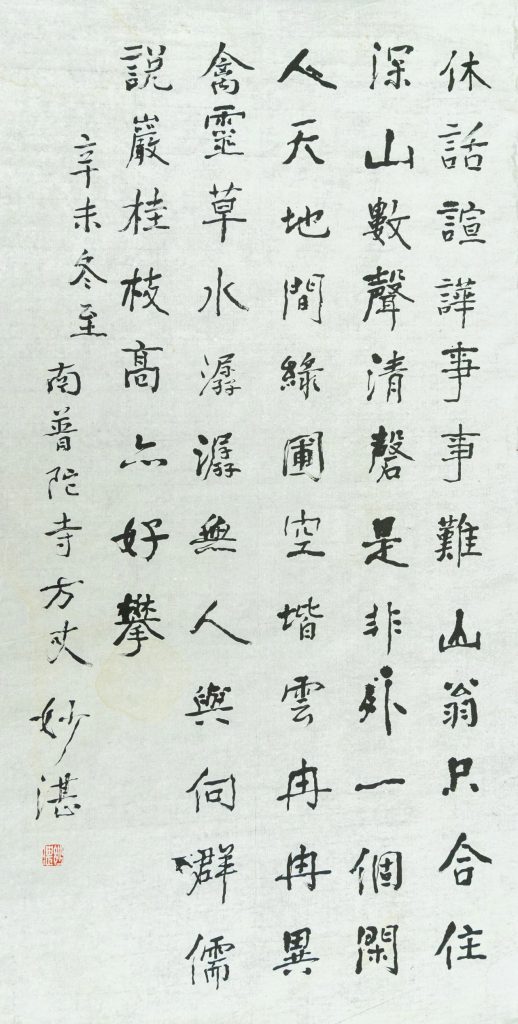 休話諠譁事事難山翁只合住
深山數聲清磬是非外一個閑
人天地間綠圃空堦雲冉冉異
禽靈草水潺潺無人與向群儒
說巖桂枝高亦好攀
辛未冬至南普陀寺方丈妙湛